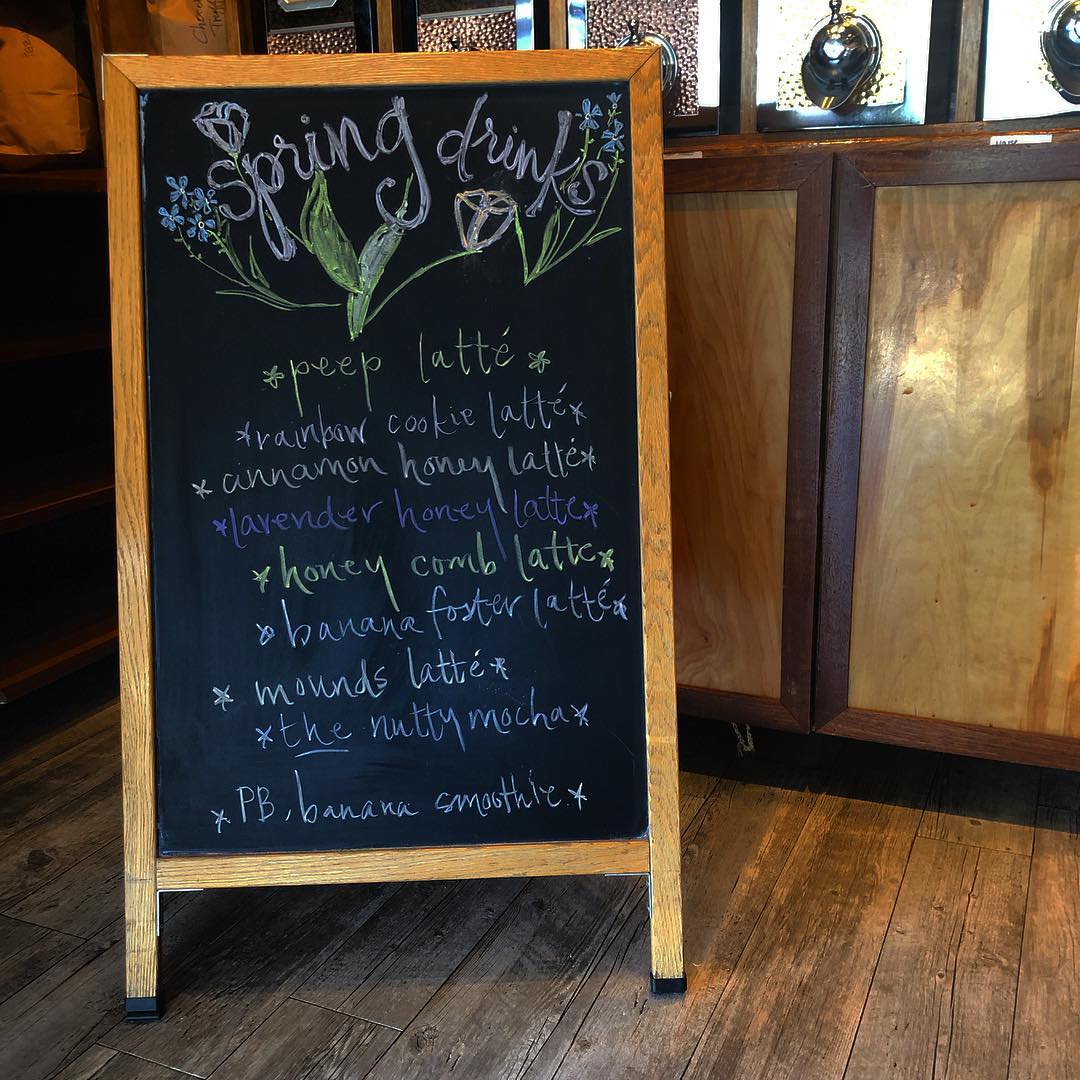 spring drinks
*peep latté*
*rainbow cookie latté*
*cinnamon honey latté*
*lavender honey latte*
*honey comb latte*
*banana foster latté*
*mounds latté*
*the nutty mocha*
*PB, banana smoothie*